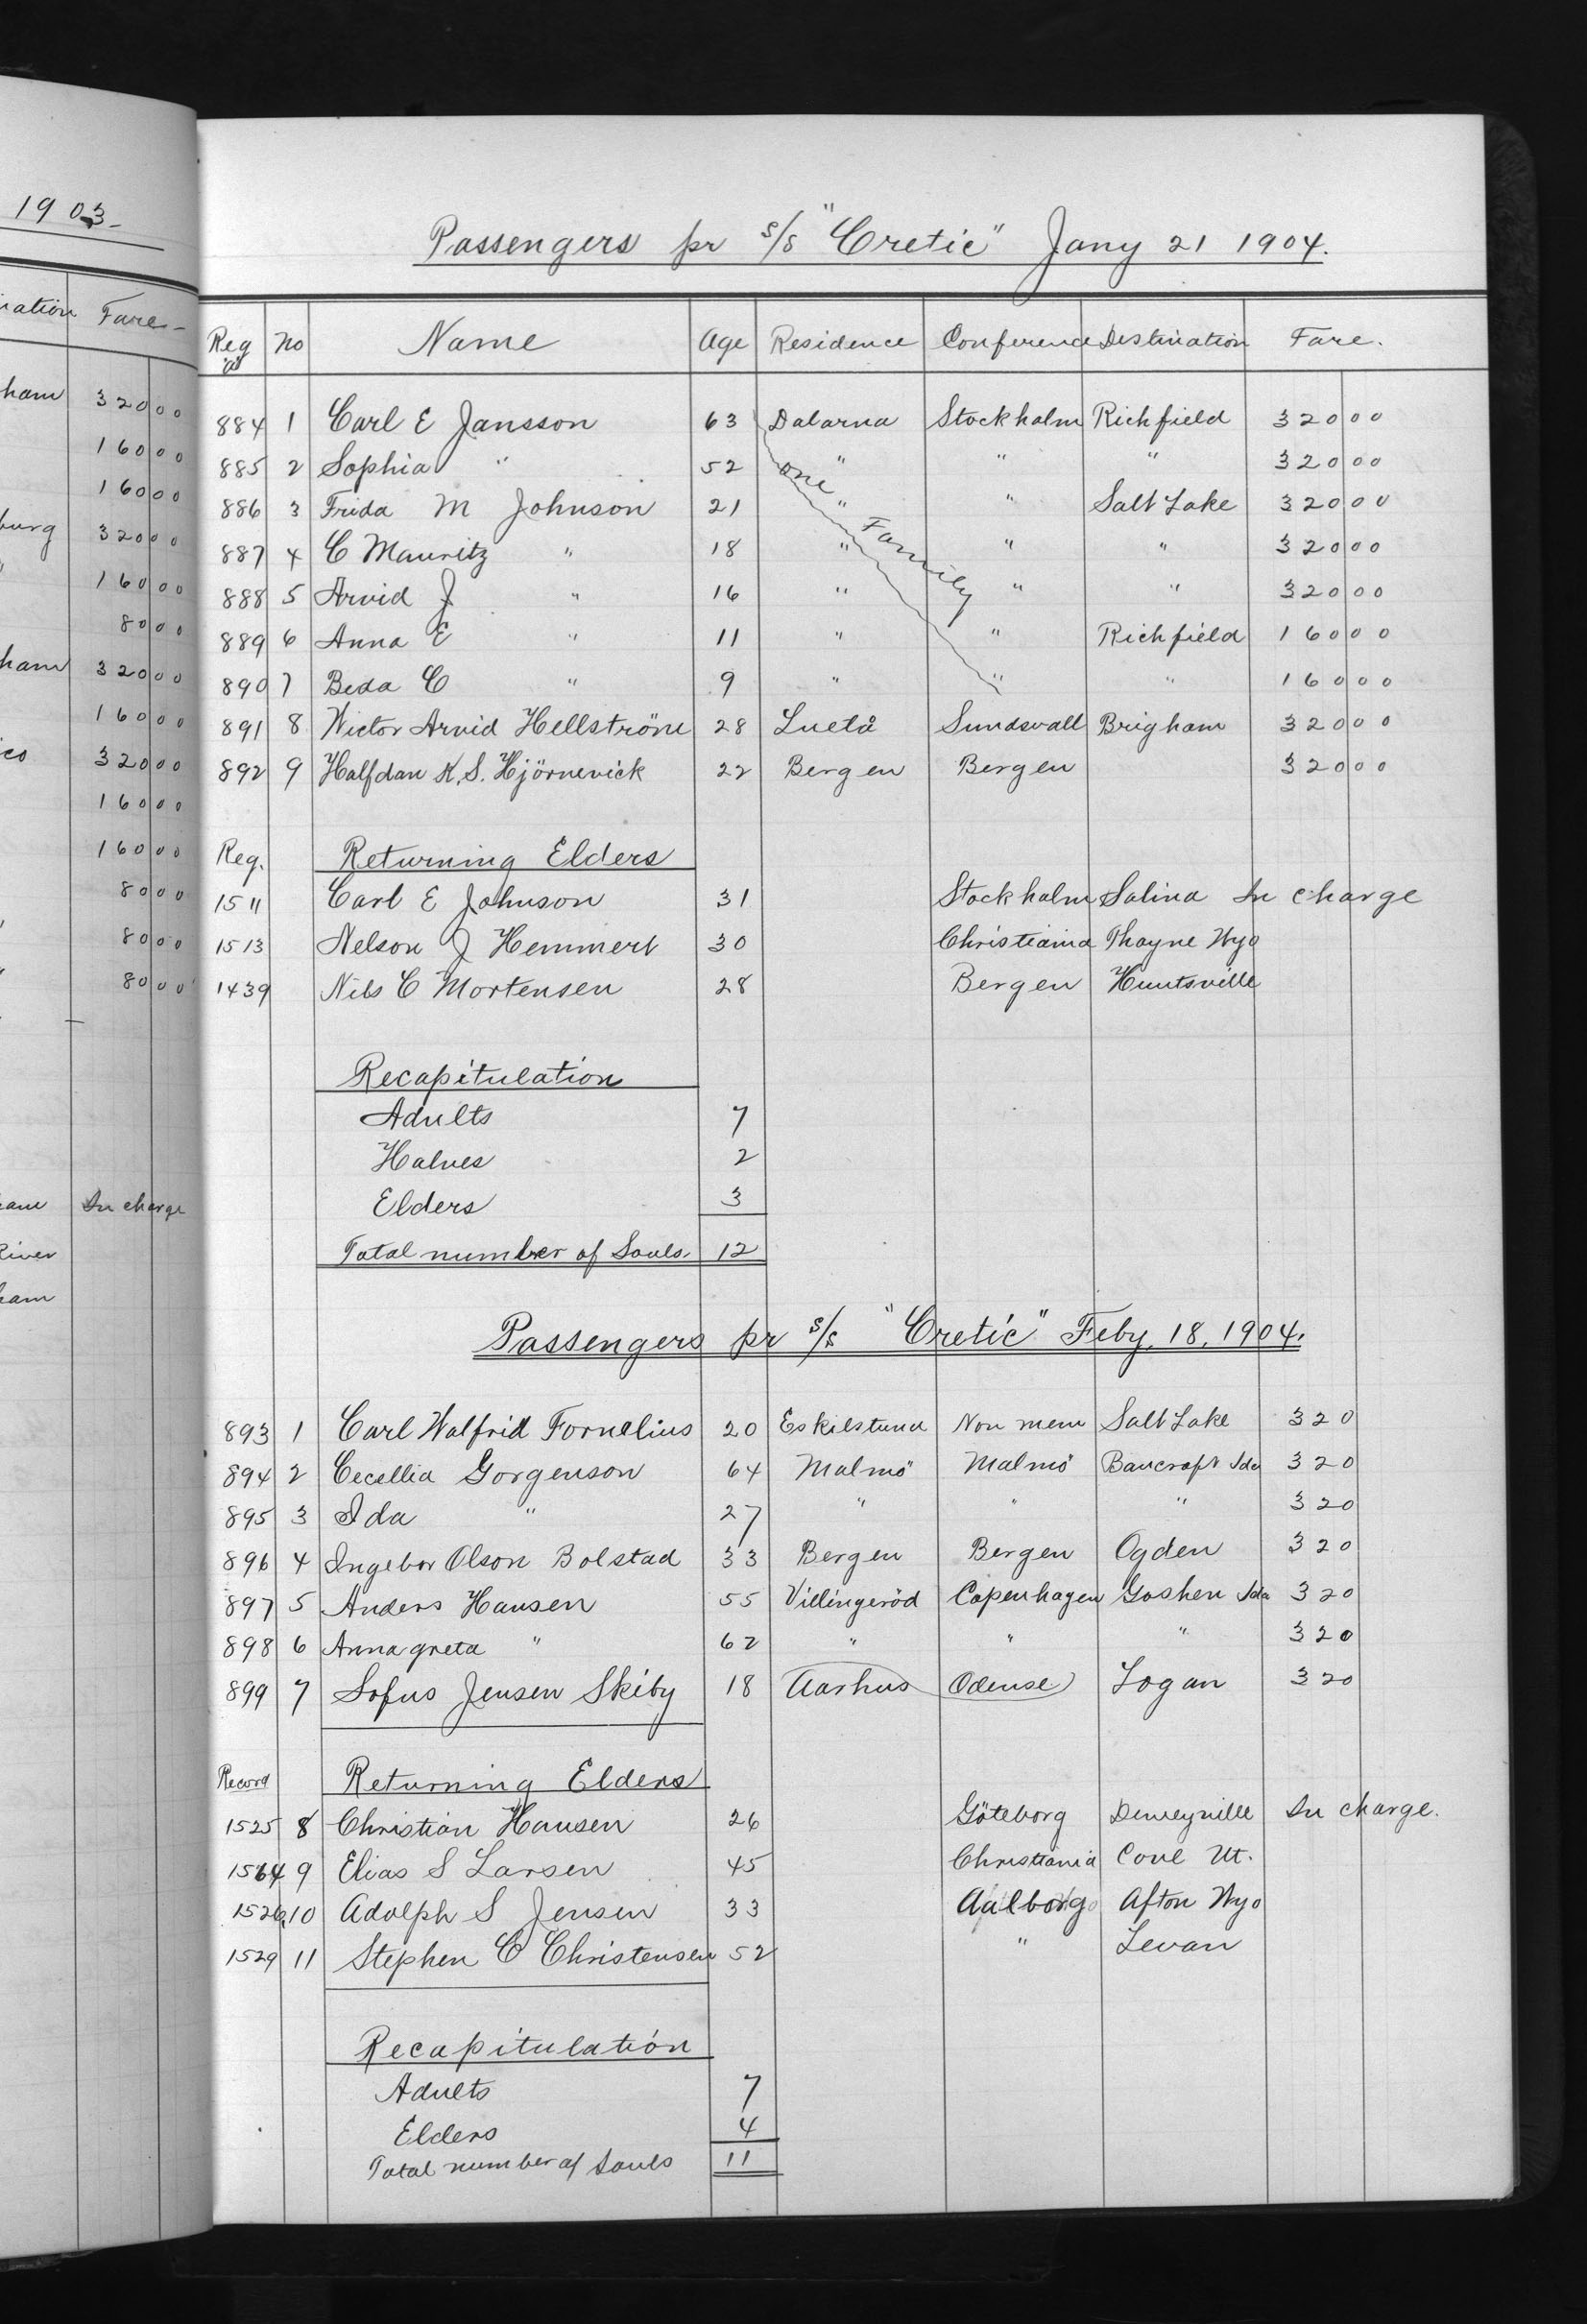 1903
Passengers pr s/s "Cretic" Jany 21 1904.
ination Fare
Reg No Name Age Residence Conference Destination Fare.
ham 320 00
160 00
160 00
burg 320 00
160 00
80 00
ham 320 00
160 00
ico 320 00
160 00
160 00
80 00
80 00
80 00
In charge
River
ham
884 1 Carl E Jansson 63 Dalarna Stockholm Richfield 320 00
885 2 Sophia " 52 " " " 320 00
886 3 Frida M Johnson 21 " " Salt Lake 320 00
887 4 C Mauritz " 18 " " " 320 00
888 5 Arvid J " 16 " " " 320 00
889 6 Anna E " 11 " " Richfield 160 00
890 7 Beda C " 9 " " " 160 00
one Family
891 8 Victor Arvid Hellström 28 Luetå Sundsvall Brigham 320 00
892 9 Halfdan K. S. Hjörnevick 22 Bergen Bergen 320 00
Reg. Returning Elders
1511 Carl E Johnson 31 Stockholm Salina In charge
1513 Nelson J Hemmert 30 Christiania Thayne Wyo
1439 Nils C Mortensen 28 Bergen Huntsville
Recapitulation
Adults 7
Halves 2
Elders 3
Total number of Souls. 12
Passengers pr s/s "Cretic" Feby. 18, 1904.
893 1 Carl Walfrid Fornelius 20 Eskilstuna Non mem Salt Lake 320
894 2 Cecellia Gorgenson 64 Malmö Malmö Bancroft Ida 320
895 3 Ida " 27 " " " 320
896 4 Ingebor Olson Bolstad 33 Bergen Bergen Ogden 320
897 5 Anders Hansen 55 Villingeröd Copenhagen Goshen Ida 320
898 6 Anna greta " 62 " " " 320
899 7 Sofus Jensen Skiby 18 Aarhus Odense Logan 320
Record Returning Elders
1525 8 Christian Hansen 26 Göteborg Deweyville In charge.
1564 9 Elias S Larsen 45 Christiania Cove Ut.
1526 10 Adolph S Jensen 33 Aalborg Afton Wyo
1529 11 Stephen C Christensen 52 " Levan
Recapitulation
Adults 7
Elders 4
Total number of Souls 11